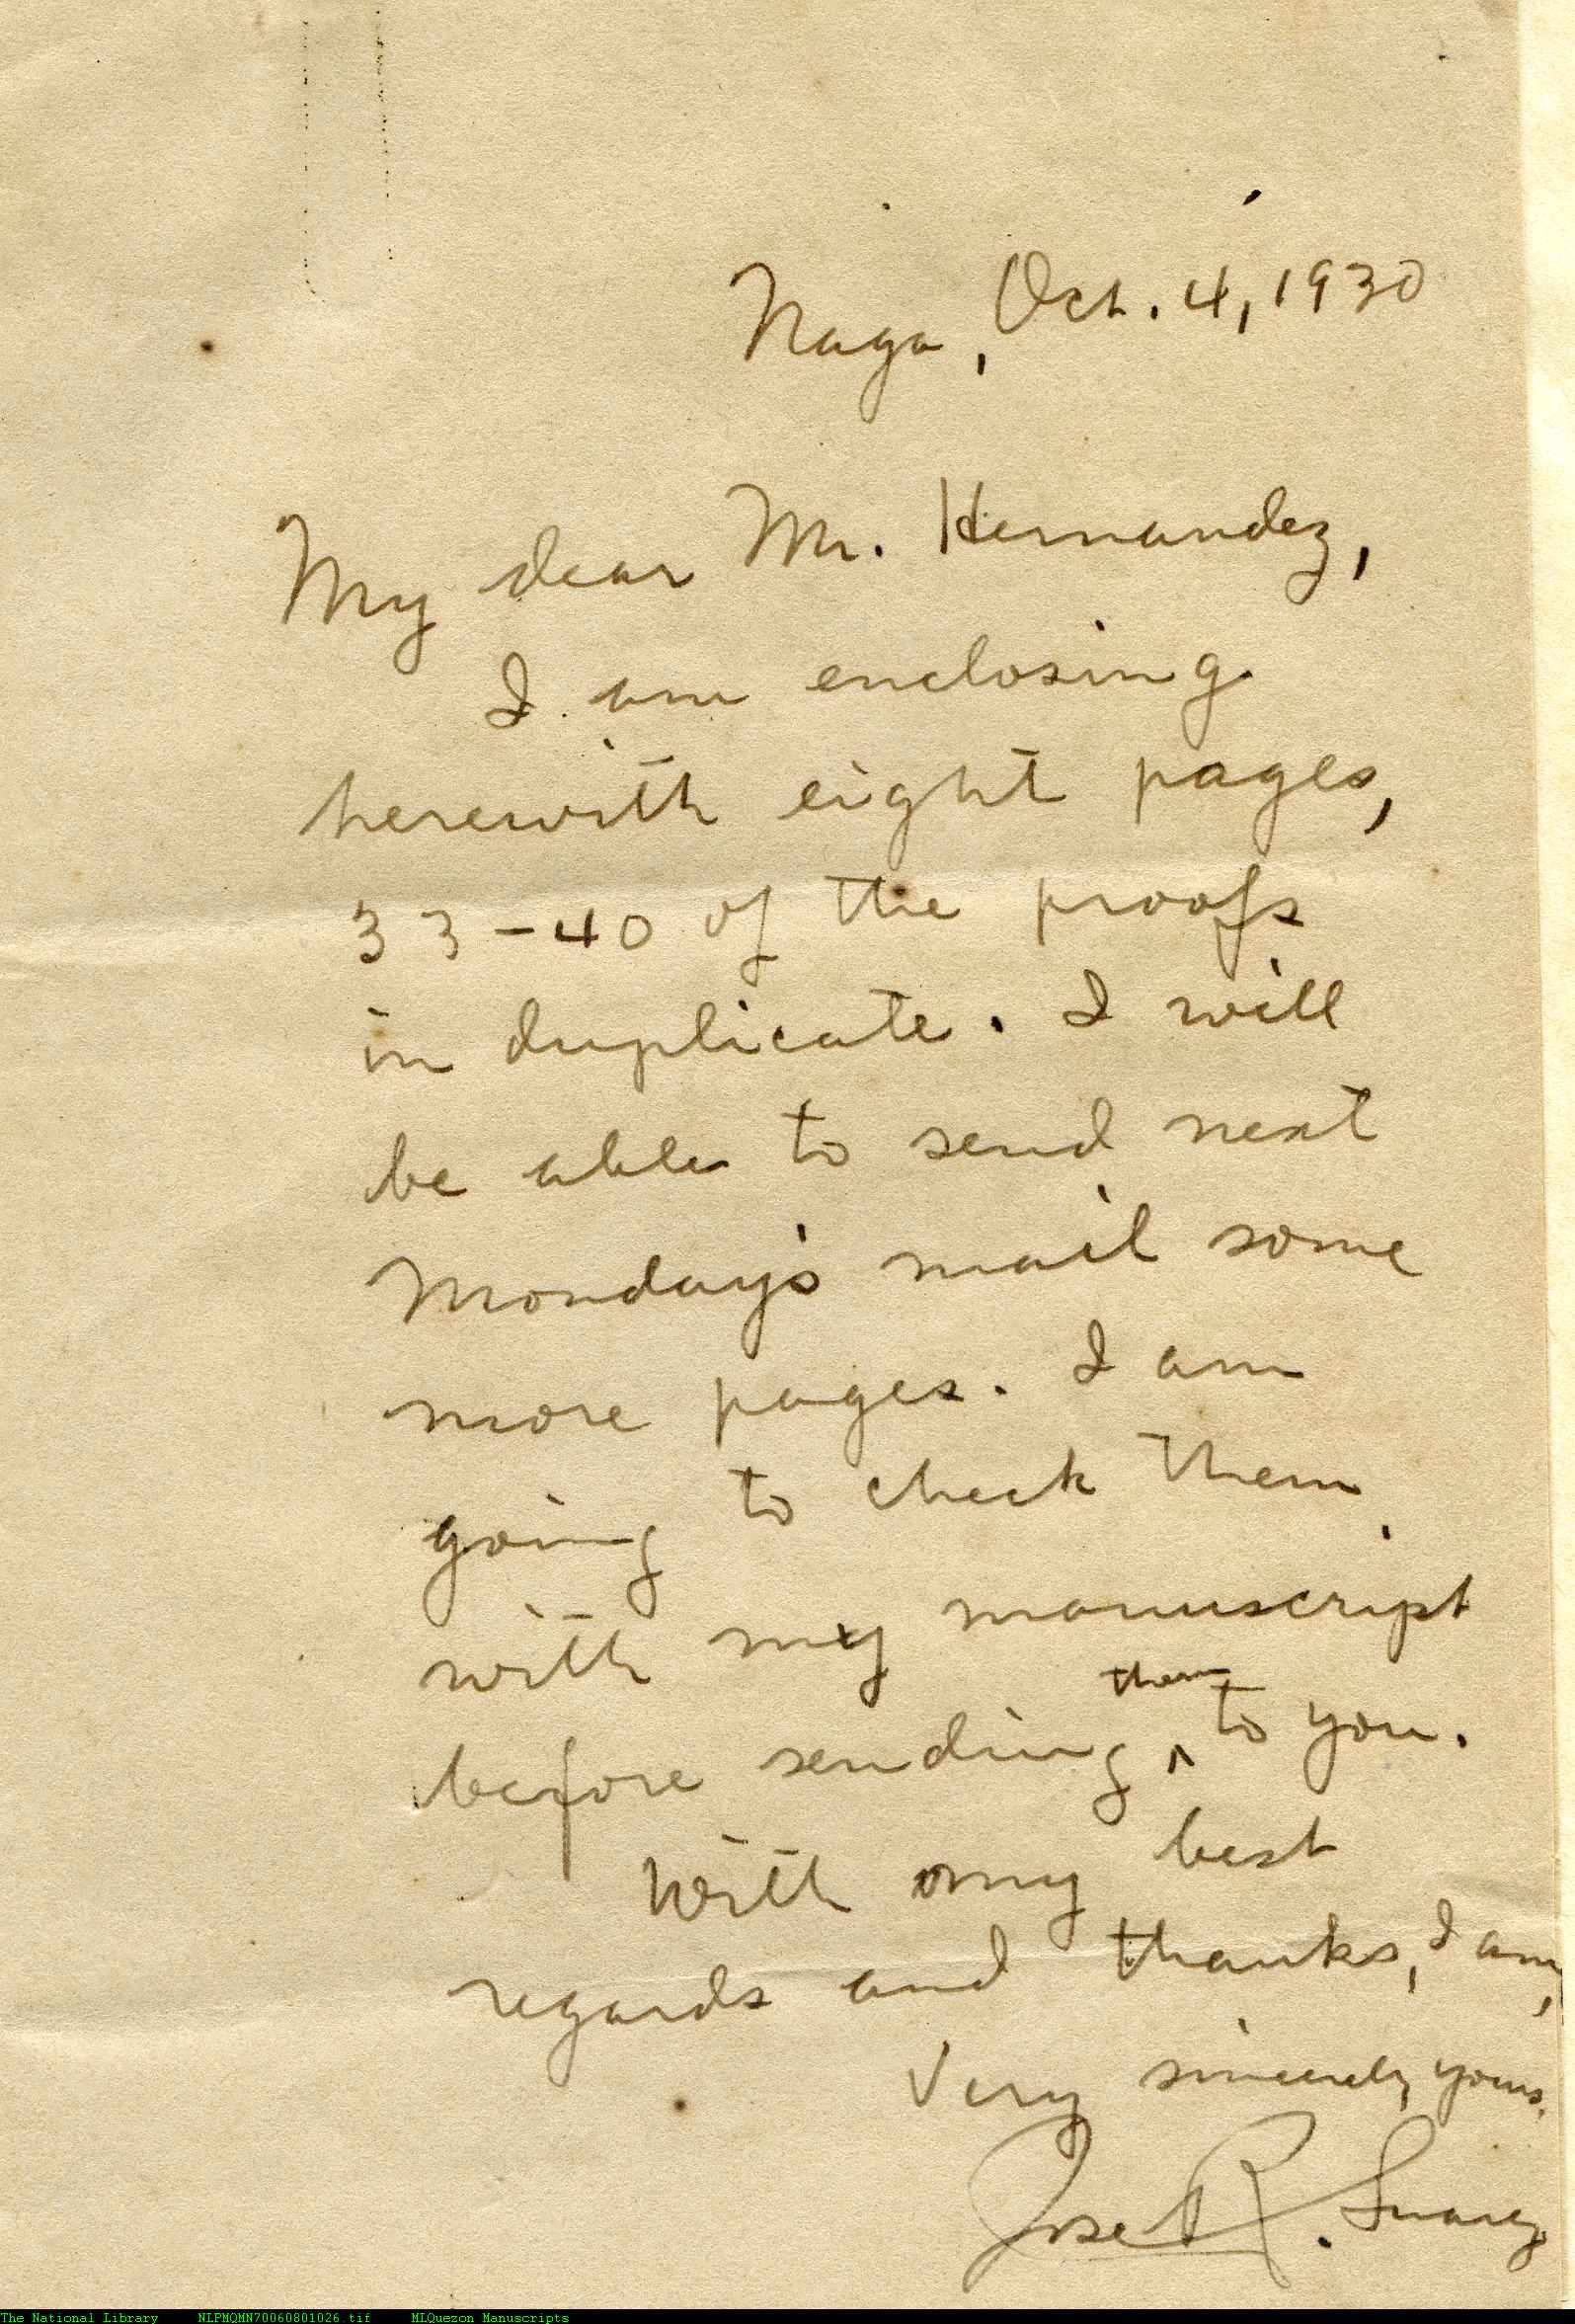 Naga, Oct. 4, 1930
My dear Mr. Hernandez,
I am enclosing
herewith eight pages,
33-40 of the proofs
in duplicate. I will
be able to send next
Monday's mail some
more pages. I am
going to check them
with my manuscript
before sending them to you.
With my best
regards and thanks, I am,
Very sincerely yours,
Jose R. Suarez
The National Library NLPMQMN70060801026.tif MLQuezon Manuscripts